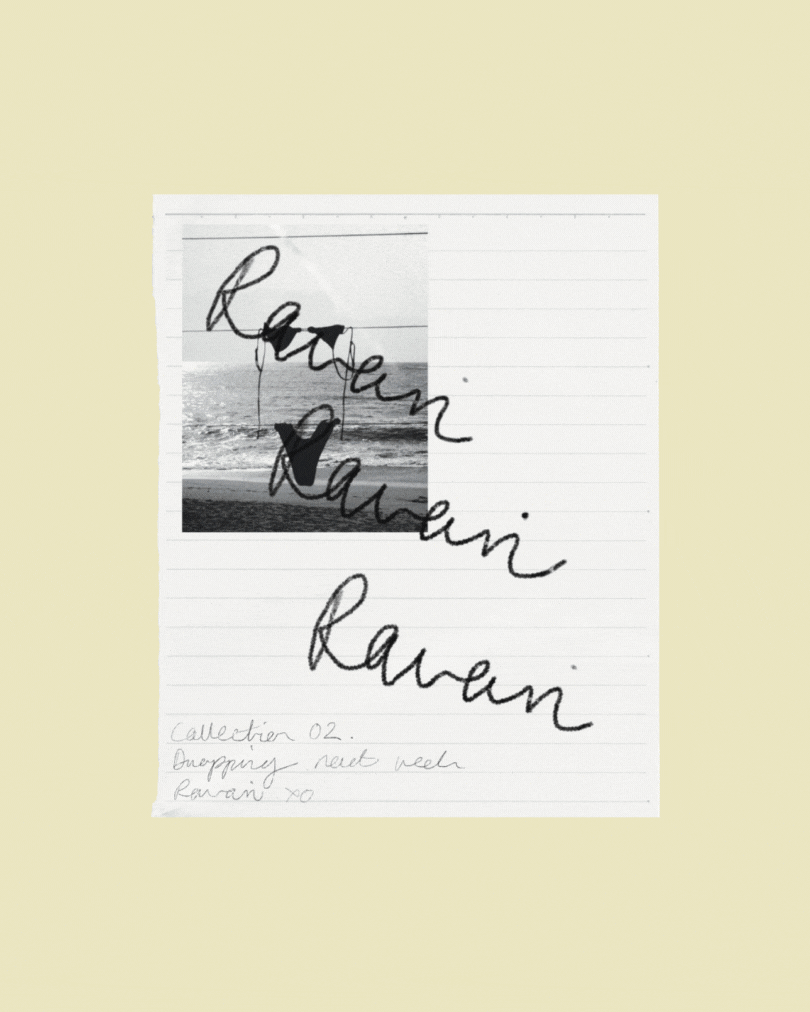 Ravani
Ravani
Ravani
Collection 02.
Dropping next week
Ravani xo